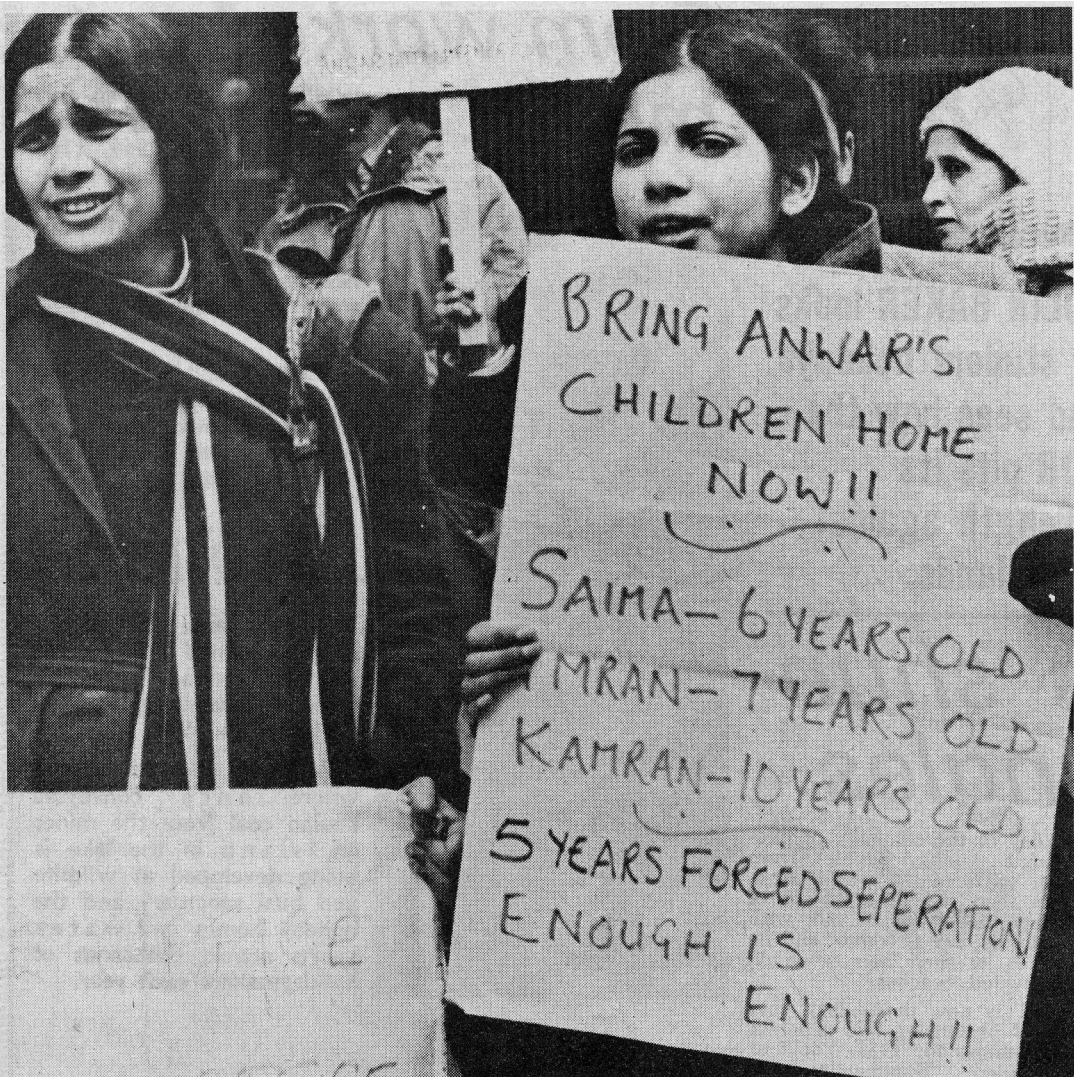 BRING ANWAR'S
CHILDREN HOME
NOW!!
SAIMA – 6 YEARS OLD
IMRAN – 7 YEARS OLD
KAMRAN – 10 YEARS OLD
5 YEARS FORCED SEPERATION!
ENOUGH IS
ENOUGH!!